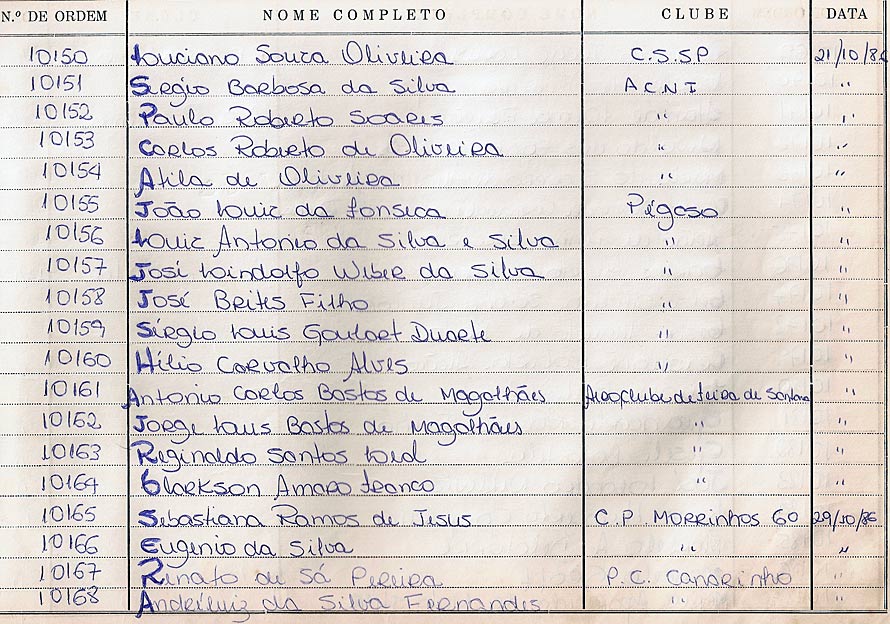 N.º DE ORDEM NOME COMPLETO CLUBE DATA
10150 Luciano Souza Oliveira C.S.S.P 21/10/86
10151 Sergio Barbosa da Silva ACNI "
10152 Paulo Roberto Soares " "
10153 Carlos Roberto de Oliveira " "
10154 Atila de Oliveira " "
10155 João Luiz da Fonseca Pégaso "
10156 Luiz Antonio da Silva e Silva " "
10157 José Lindolfo Weber da Silva " "
10158 José Brites Filho " "
10159 Sérgio Luis Goulart Duarte " "
10160 Hélio Carvalho Alves " "
10161 Antonio Carlos Bastos de Magalhães Aeroclube de feira de Santana "
10162 Jorge Luis Bastos de Magalhães " "
10163 Reginaldo Santos Leal " "
10164 Amaro franco " "
10165 Sebastiana Ramos de Jesus C.P. Morrinhos GO 29/10/86
10166 Eugenio da Silva " "
10167 Renato de Sá Pereira P.C. Canarinho "
10168 André Luiz da Silva Fernandes " "